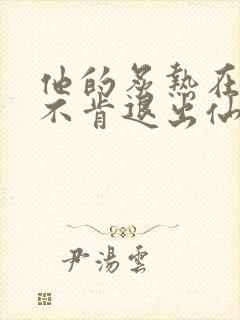 他的炙熱在
不肯退出仙
尹湯雲